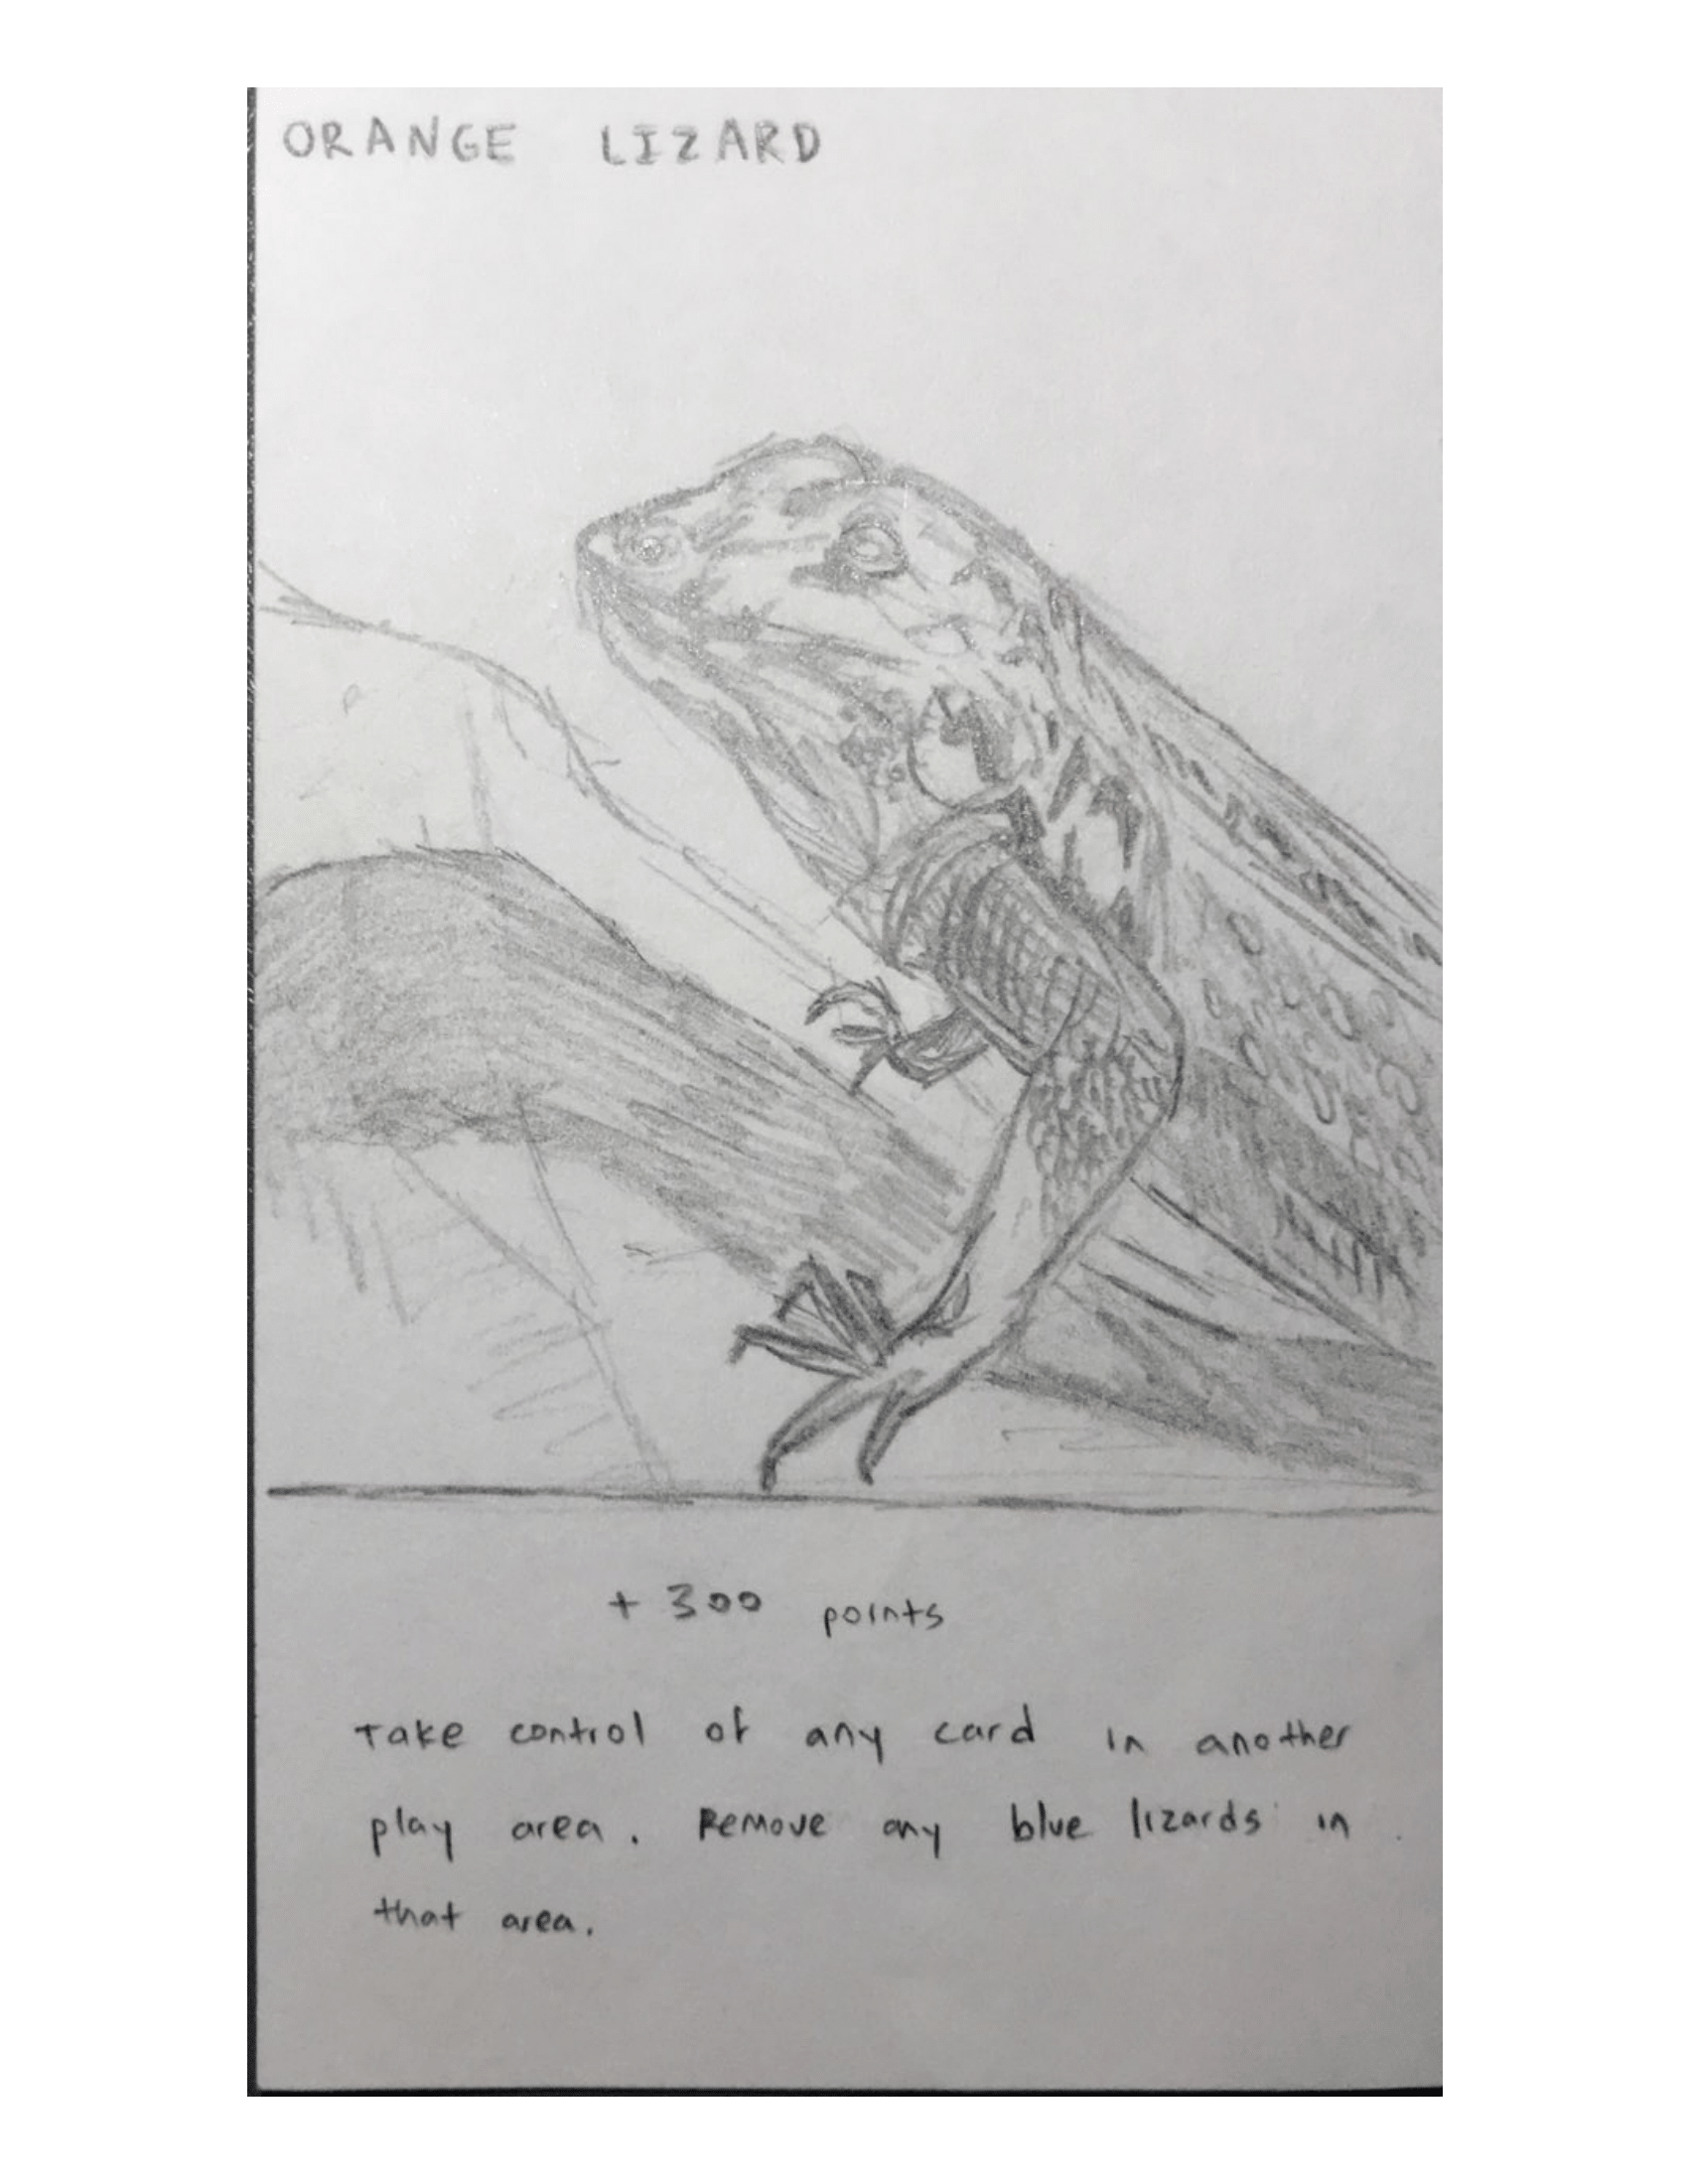 ORANGE LIZARD
+ 300 points
Take control of any card in another
play area. Remove any blue lizards in
that area.